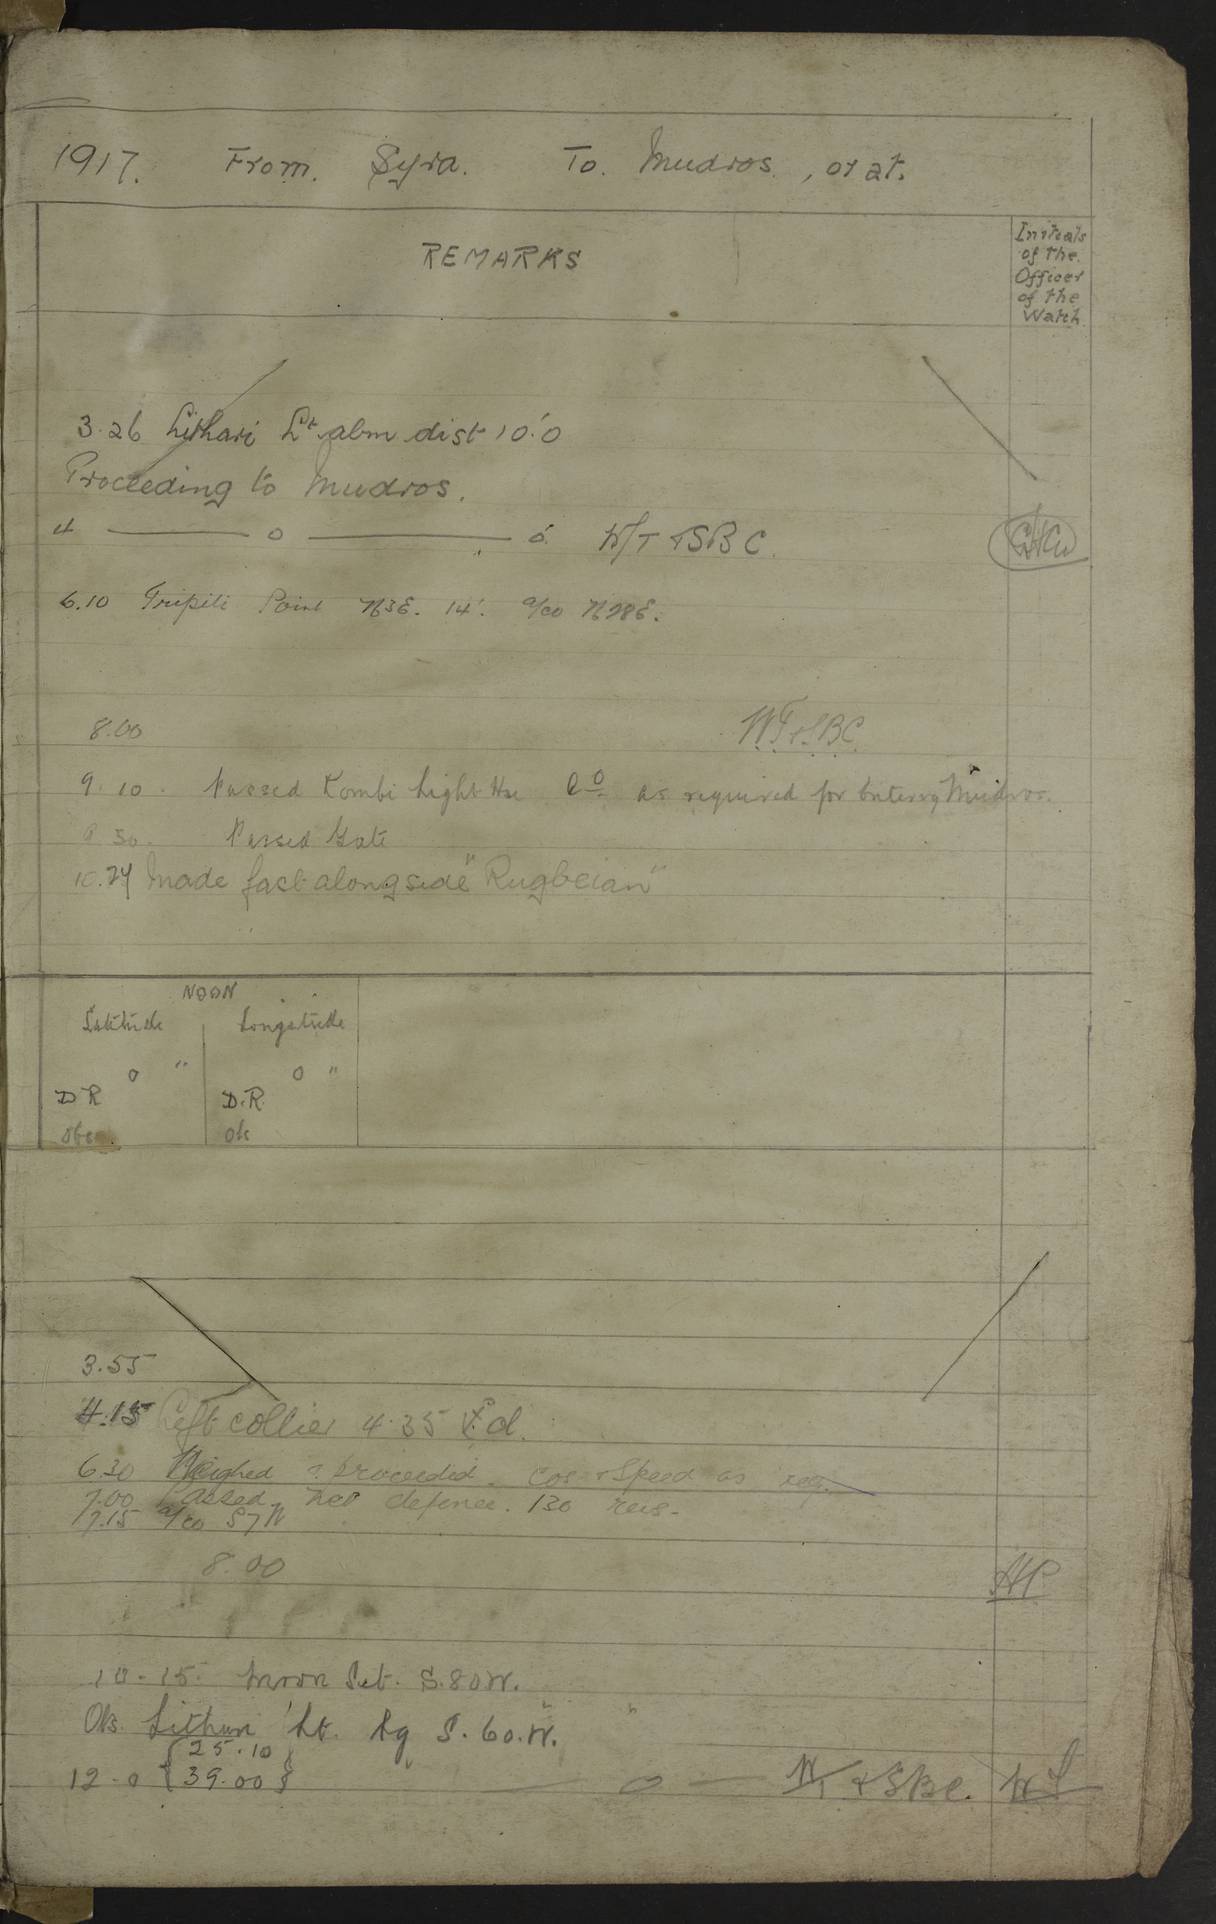 1917. From. Syra. To. Mudros. , or at.
REMARKS
Initials
of the.
Officer
of the
Watch
3.26 Lithari Lt abm dist 10'.0
Proceeding to Mudros.
4 — o — o. W/T & SBC.
6.10 Tripiti Point N3E. 14'. a/co N28E.
8.00 W.T & S.BC.
9.10. Passed Kombi Light Hse Co as required for entering Mudros.
9.50. Passed Gate
10.24 Made fast alongside "Rugbeian"
NOON
Latitude Longitude
o " o "
D R D.R.
Obs. Obs
3.55
4.15 Left collier 4.35 &d.
6.30 Weighed & proceeded. Cos & Speed as req.
7.00 Passed net defence. 130 revs.
7.15 a/co S7W
8.00
AP
10-15. Moon Set. S.80W.
Obs Lithari Lt. Bg S.60.W. "
12-0 {25.10
39.00} — o — W/T & SBC.